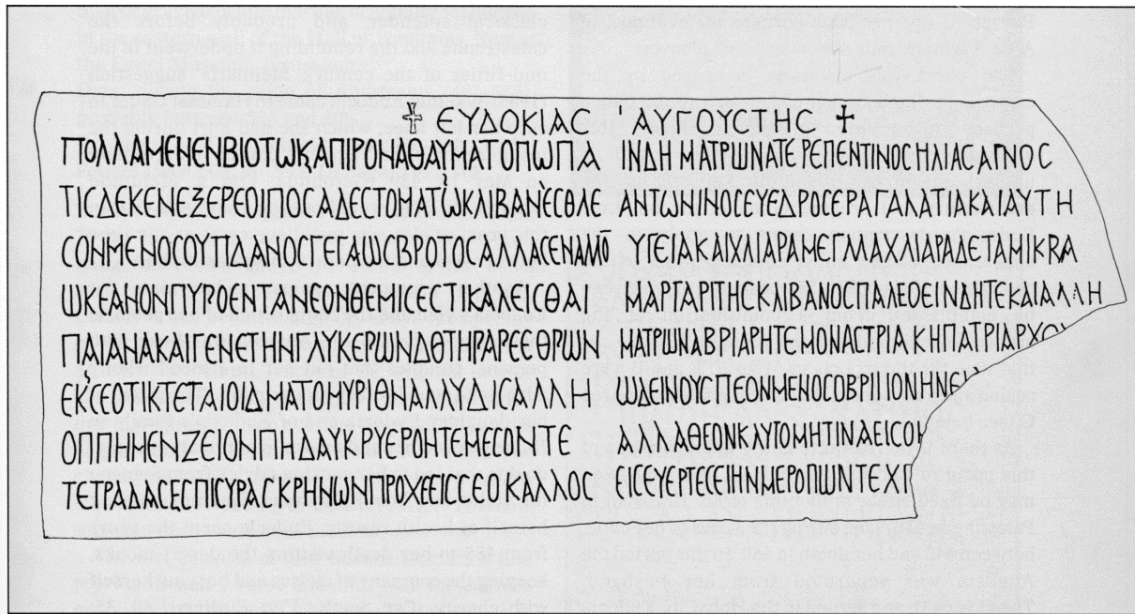 ΕΥΔΟΚΙΑС ΑΥΓΟΥСΤΗС
ΠΟΛΛΑΜΕΝΕΝΒΙΟΤΩΚΑΠΙΡΟΝΑΘΑΥΜΑΤΟΠΩΠΑ
ΤΙСΔΕΚΕΝΕΞΕΡΕΟΙΠΟСΑΔΕСΤΟΜΑΤΩΚΛΙΒΑΝΕСΘΛΕ
СΟΝΜΕΝΟСΟΥΤΙΔΑΝΟСΓΕΓΑΩСΒΡΟΤΟСΑΛΛΑСΕΝΑΜΟ
ΩΚΕΑΝΟΝΠΥΡΟΕΝΤΑΝΕΟΝΘΕΜΙСΕСΤΙΚΑΛΕΙСΘΑΙ
ΠΑΙΑΝΑΚΑΙΓΕΝΕΤΗΝΓΛΥΚΕΡΩΝΔΟΤΗΡΑΡΕΕΘΡΩΝ
ΕΚСΕΟΤΙΚΤΕΤΑΙΟΙΔΜΑΤΟΜΥΡΙΟΝΑΛΛΥΔΙСΑΛΛΗ
ΟΠΠΗΜΕΝΖΕΙΟΝΠΗΔΑΥΚΡΥΕΡΟΝΤΕΜΕСΟΝΤΕ
ΤΕΤΡΑΔΑСΕСΠΙСΥΡΑСΚΡΗΝΩΝΠΡΟΧΕΕΙССΕΟΚΑΛΛΟС
ΙΝΔΗΜΑΤΡΩΝΑΤΕΡΕΠΕΝΤΙΝΟСΗΛΙΑСΑΓΝΟС
ΑΝΤΩΝΙΝΟСΕΥΕΔΡΟСΕΡΑΓΑΛΑΤΙΑΚΑΙΑΥΤΗ
ΥΓΕΙΑΚΑΙΧΛΙΑΡΑΜΕΓΑΛΑΧΛΙΑΡΑΔΕΤΑΜΙΚΡΑ
ΜΑΡΓΑΡΙΤΗСΚΛΙΒΑΝΟСΠΑΛΕΟСΙΝΔΗΤΕΚΑΙΑΛΛΗ
ΜΑΤΡΩΝΑΒΡΙΑΡΗΤΕΜΟΝΑСΤΡΙΑΚΗΠΑΤΡΙΑΡΧΟΥ
ΩΔΕΙΝΟΥСΙΤΕΟΝΜΕΝΟСΟΒΡΙΜΟΝΗΝΕ
ΑΛΛΑΘΕΟΝΚΛΥΤΟΜΗΤΙΝΑΕΙСΟ
ΕΙСΕΥΕΡΓΕСΙΗΝΜΕΡΟΠΩΝΤΕΧ